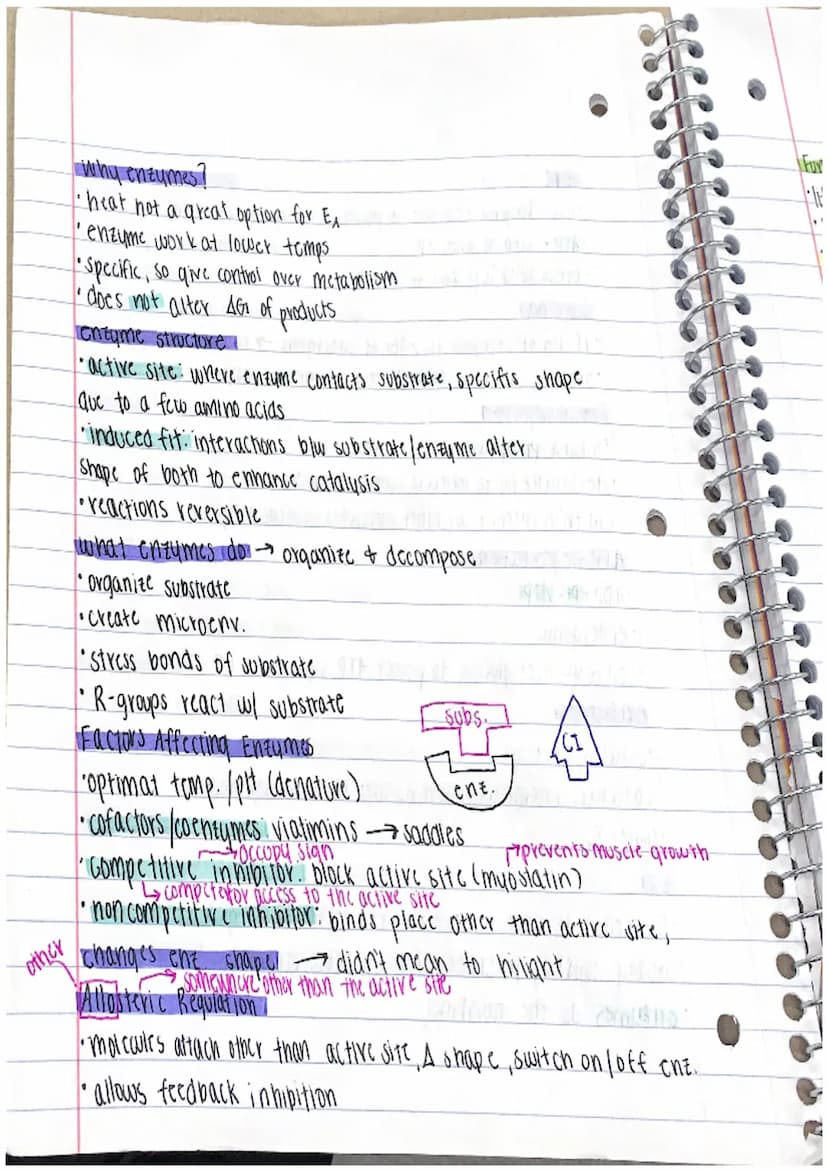 Why enzymes?
· heat not a great option for EA
· enzyme work at lower temps
· specific, so give control over metabolism
· does not alter ΔG of products
enzyme structure
· active site: where enzyme contacts substrate, specifis shape
due to a few amino acids
· induced fit: interactions b/w substrate/enzyme alter
shape of both to enhance catalysis
· reactions reversible
what enzymes do → organize + decompose
· organize substrate
· create microenv.
· stress bonds of substrate
· R-groups react w/ substrate
subs.
CI
enz.
Factors Affecting Enzymes
· optimal temp./pH (denature)
· cofactors/coenzymes viatimins → saddles
→ occupy sign
→ prevents muscle growth
· competitive inhibitor: block active site (myostatin)
↳ compete for access to the active site
· noncompetitive inhibitor: binds place other than active site,
changes enz shape → didn't mean to hilight
other
→ somewhere other than the active site
Allosteric Regulation
· molecules attach other than active site, Δ shape, switch on/off enz.
· allows feedback inhibition